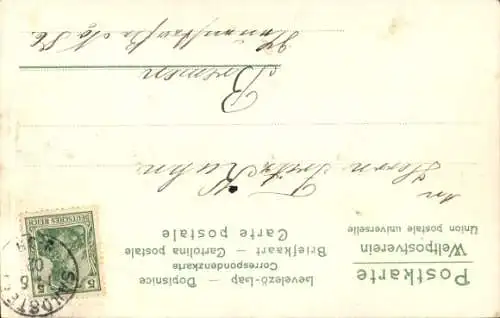 Postkarte
Weltpostverein
Union postale universelle
Levelező-Lap — Dopisnice
Correspondenzkarte
Briefkaart — Cartolina postale
Carte postale
An
Herrn Fritz Kuhn
Bremen
DEUTSCHES REICH
5 5